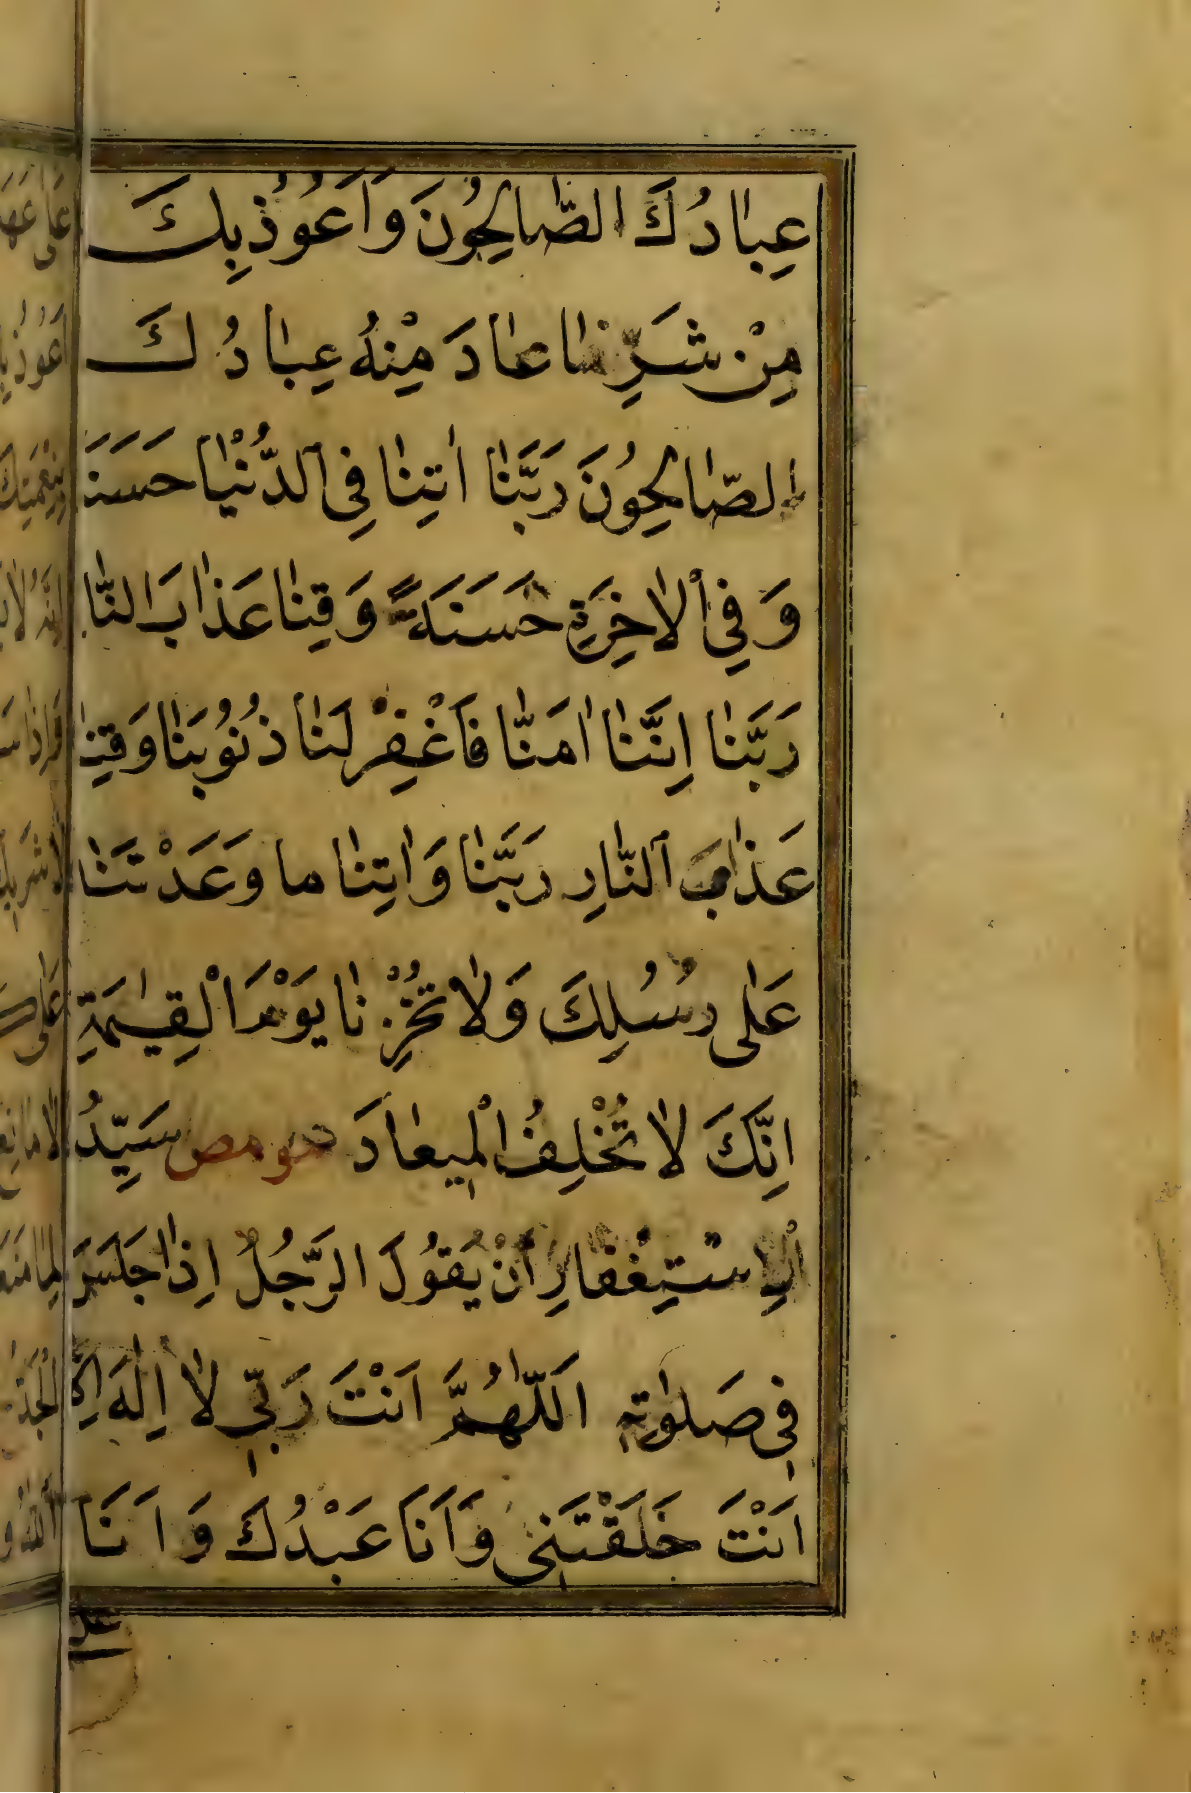 عِبٰادُكَ الصّٰالِحُونَ وَاَعُوُذُبِكَ
مِنْ شَرِّ مٰا عٰادَ مِنْهُ عِبٰادُكَ
الصّٰالِحُونَ رَبَّنٰا اٰتِنٰا فِى الدُّنْيٰا حَسَنَ
وَفِى الْاٰخِرَةِ حَسَنَةً وَقِنٰا عَذٰابَ النّٰا
رَبَّنٰا اِنَّنٰا اٰمَنّٰا فَاغْفِرْ لَنٰا ذُنُوُبَنٰا وَقِنٰا
عَذٰابَ النّٰارِ رَبَّنٰا وَاٰتِنٰا ما وَعَدْتَنٰا
عَلٰى رُسُلِكَ وَلٰا تُخْزِنٰا يَوْمَ الْقِيٰمَةِ
اِنَّكَ لٰا تُخْلِفُ الْمِيعٰادَ مص سَيِّدُ
الْاِسْتِغْفٰارِ اَنْ يَقُولَ الرَّجُلُ اِذٰا جَلَسَ
فِى صَلٰوتِهِ اَللّٰهُمَّ اَنْتَ رَبِّى لٰا اِلٰهَ اِلّٰا
اَنْتَ خَلَقْتَنِى وَاَنَا عَبْدُكَ وَاَنَا